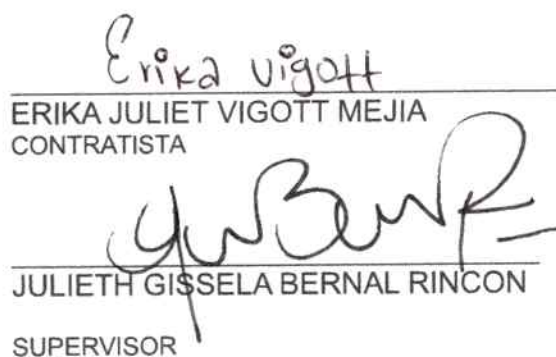 Erika Vigott
ERIKA JULIET VIGOTT MEJIA
CONTRATISTA
JULIETH GISSELA BERNAL RINCON
SUPERVISOR